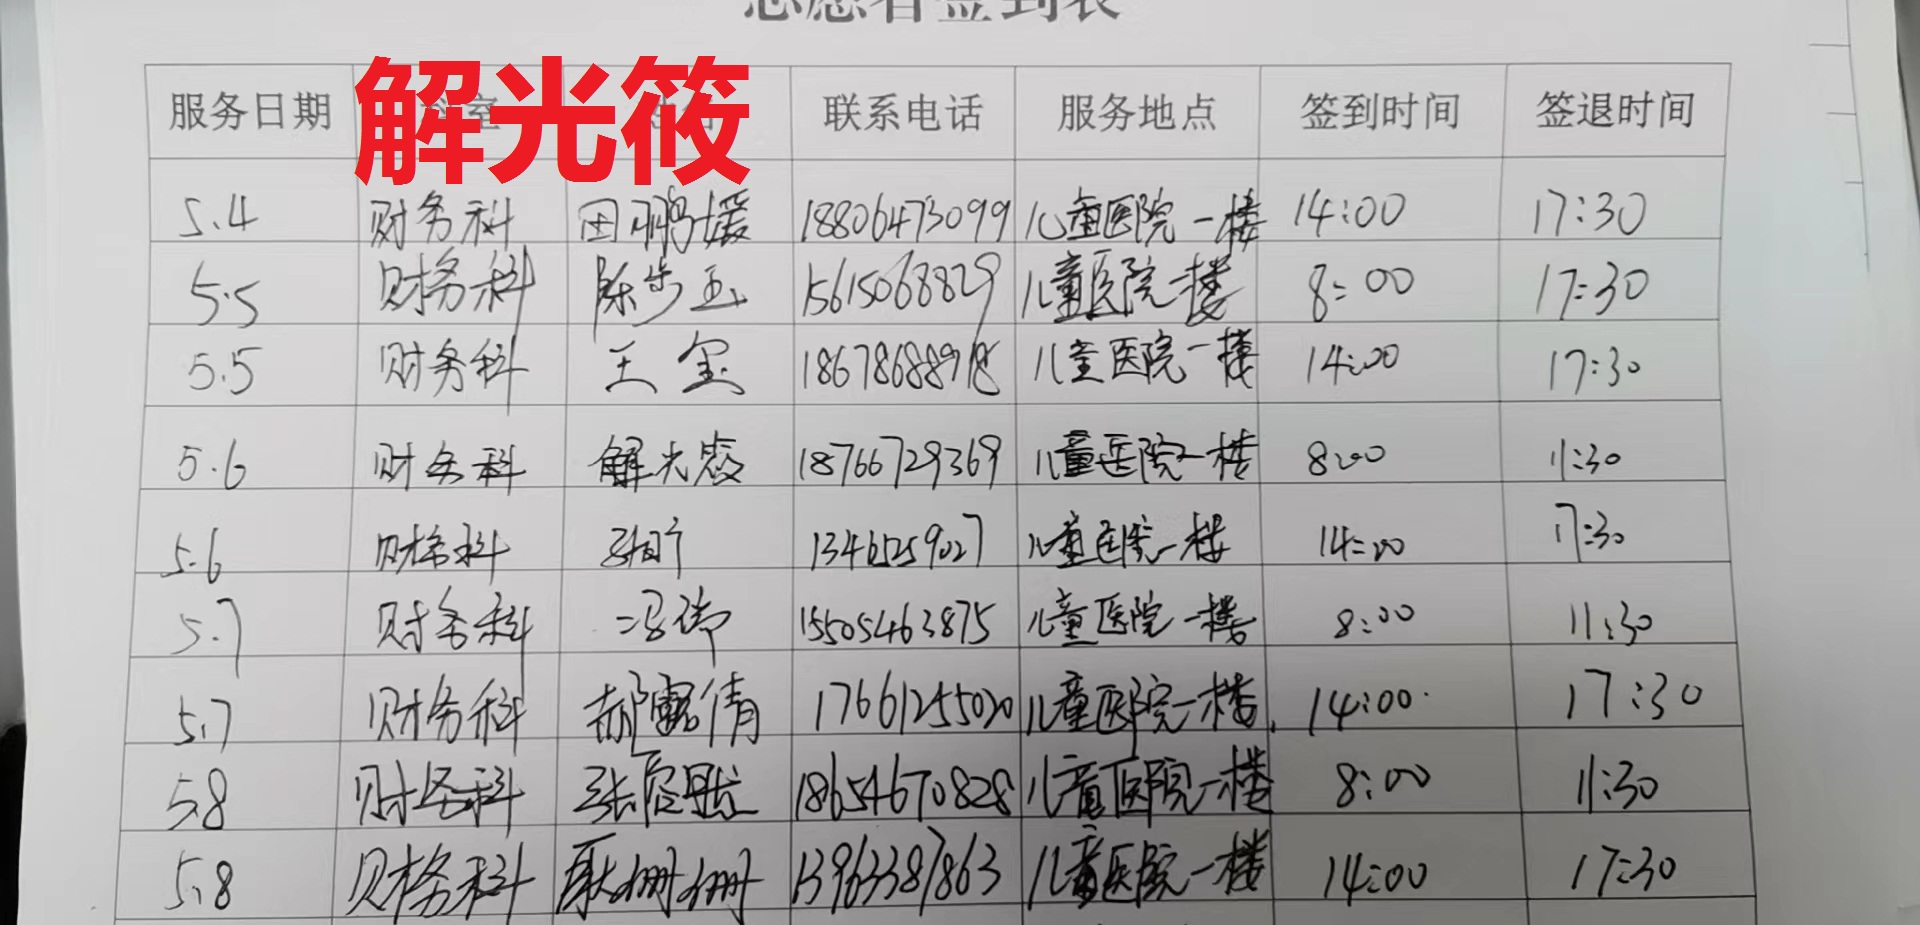 志愿者签到表
解光筱
服务日期 科室 姓名 联系电话 服务地点 签到时间 签退时间
5.4 财务科 田鹏媛 18806473099 儿童医院一楼 14:00 17:30
5.5 财务科 陈步玉 15615068829 儿童医院一楼 8:00 17:30
5.5 财务科 王玺 18678688918 儿童医院一楼 14:00 17:30
5.6 财务科 解光筱 18766729369 儿童医院一楼 8:00 11:30
5.6 财务科 13461259027 儿童医院一楼 14:00 17:30
5.7 财务科 冯伟 15505463875 儿童医院一楼 8:00 11:30
5.7 财务科 郝露倩 17661255020 儿童医院一楼 14:00 17:30
5.8 财务科 18654670828 儿童医院一楼 8:00 11:30
5.8 财务科 耿姗姗 13963387863 儿童医院一楼 14:00 17:30